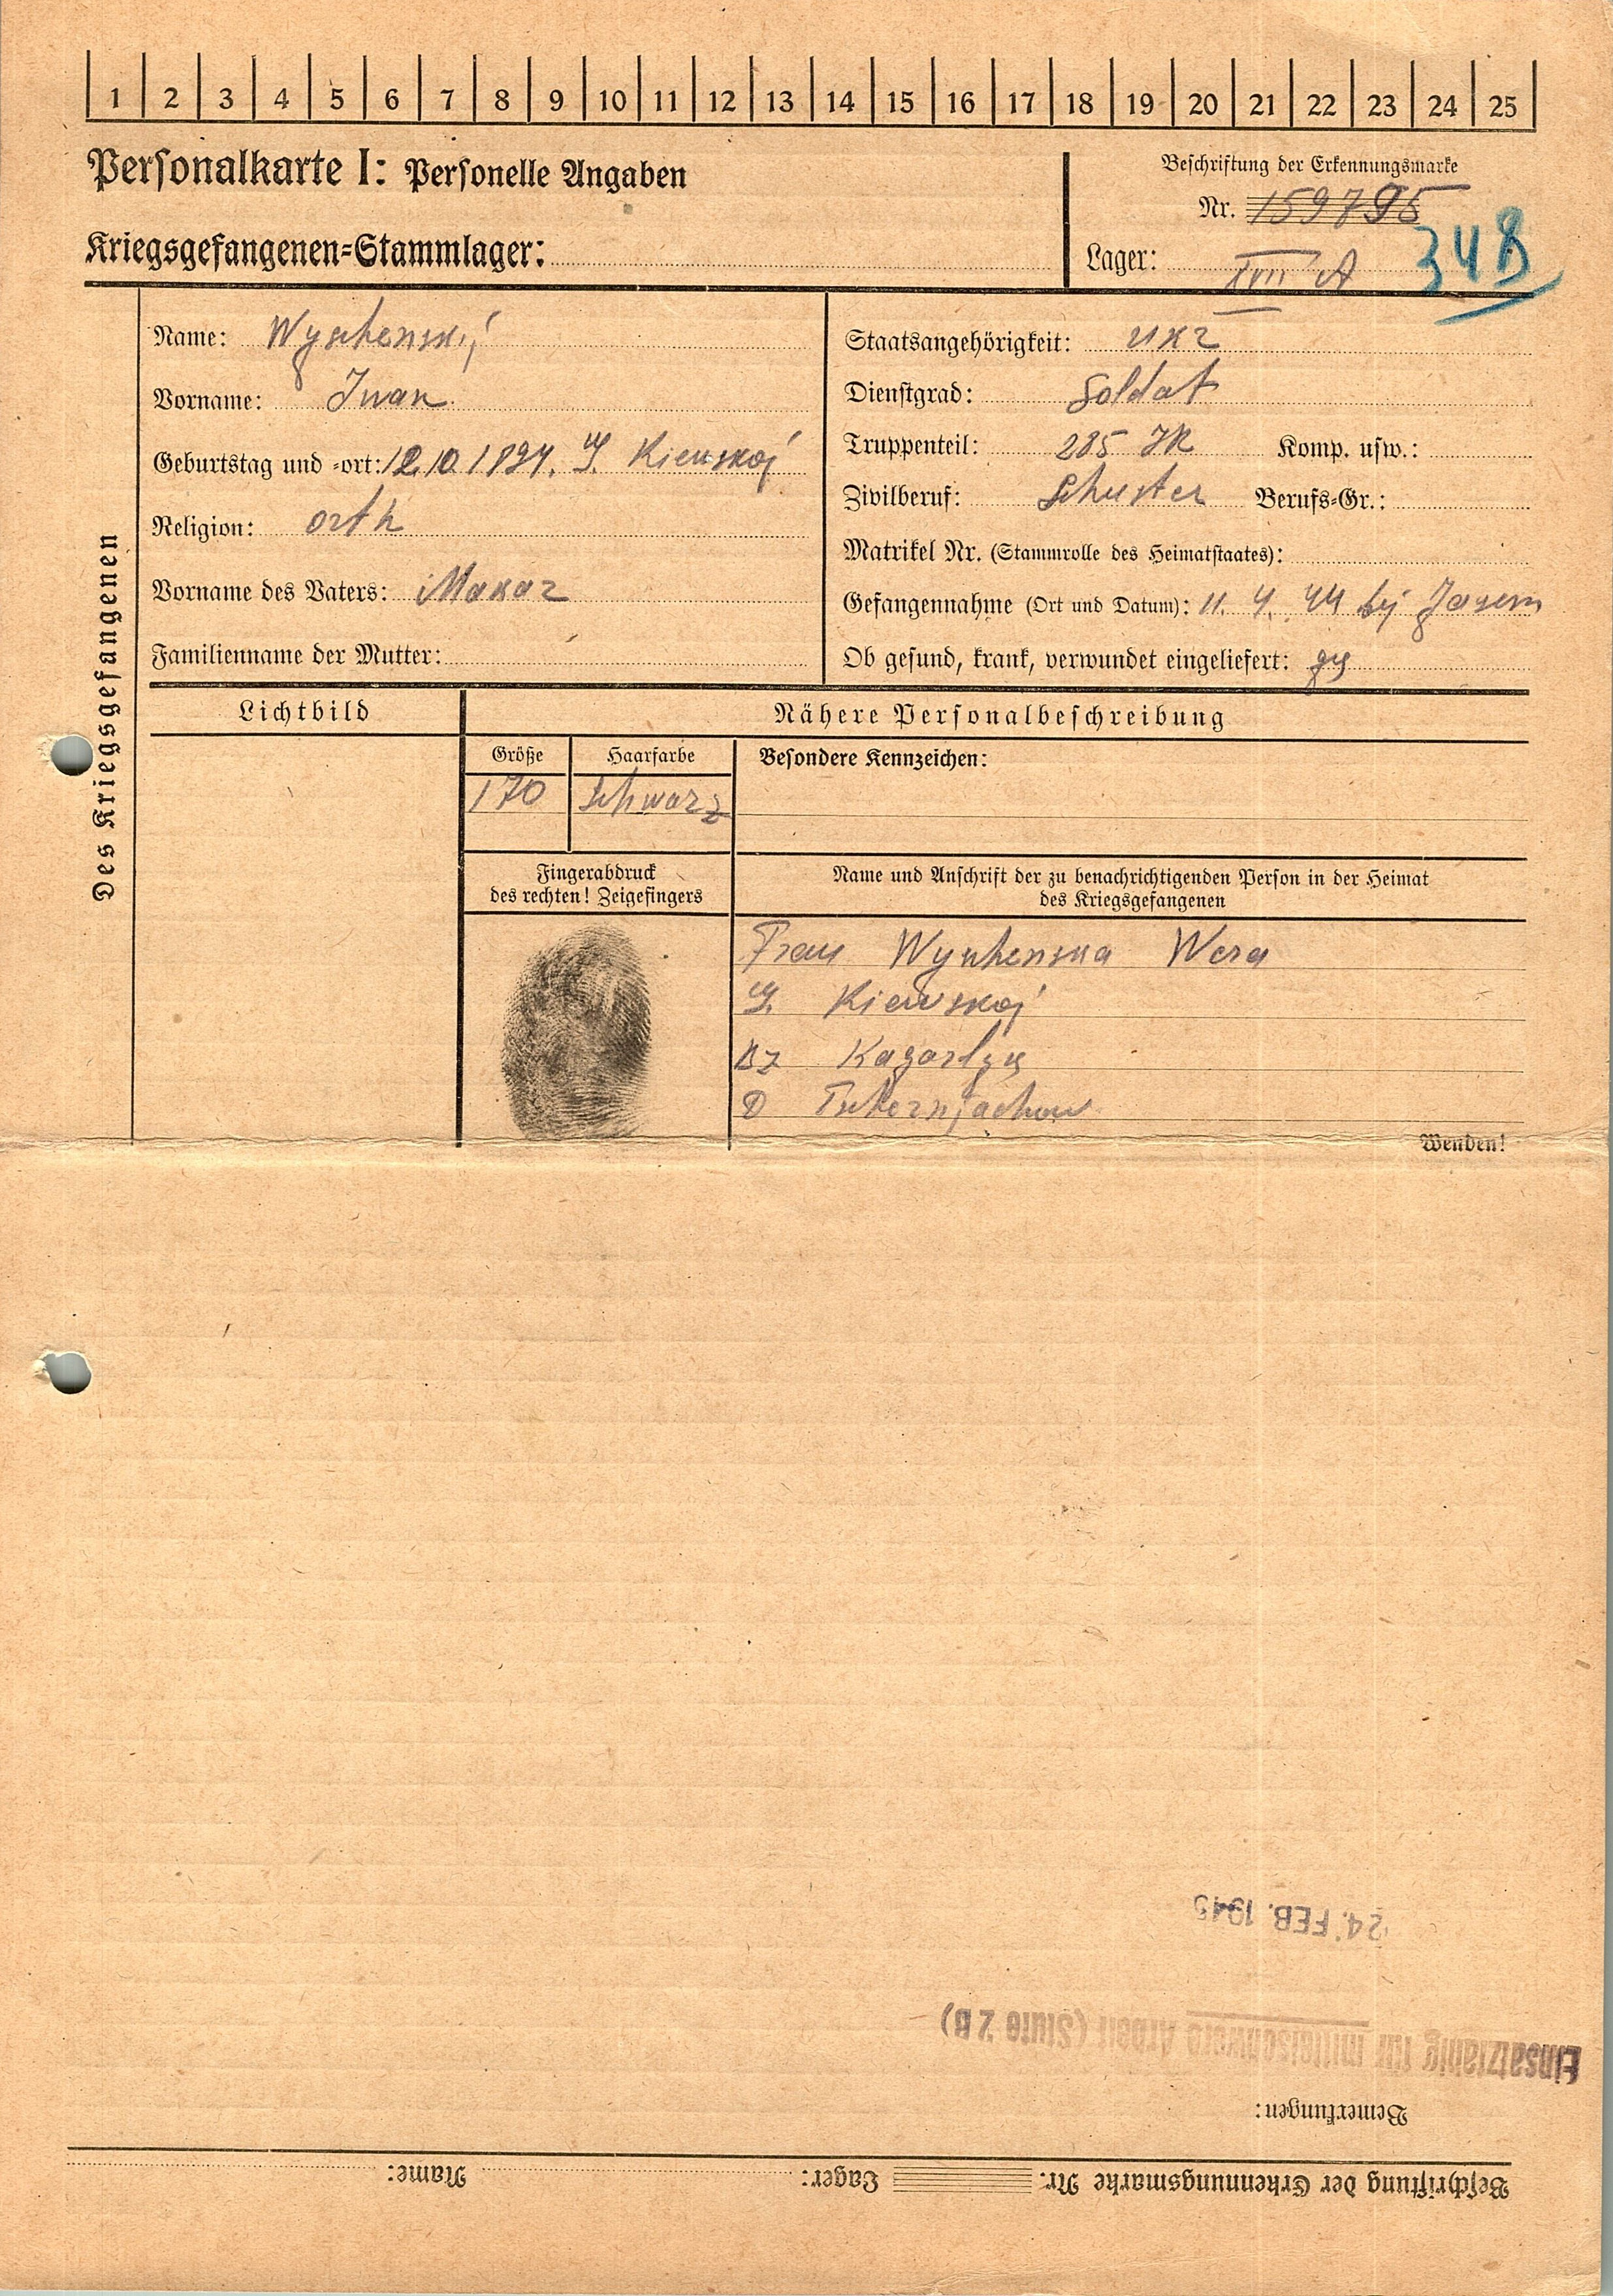 1 2 3 4 5 6 7 8 9 10 11 12 13 14 15 16 17 18 19 20 21 22 23 24 25
Personalkarte I: Personelle Angaben
Beschriftung der Erkennungsmarke
Nr. 159795
Kriegsgefangenen-Stammlager:
Lager: XVII A 348
Des Kriegsgefangenen
Name: Wyschenskij
Vorname: Iwan
Geburtstag und -ort: 12.10.1894. G. Kiewskoj
Religion: orth
Vorname des Vaters: Makar
Familienname der Mutter:
Staatsangehörigkeit: ukr
Dienstgrad: Soldat
Truppenteil: 285 IR Komp. usw.:
Zivilberuf: Schuster Berufs-Gr.:
Matrikel Nr. (Stammrolle des Heimatstaates):
Gefangennahme (Ort und Datum): 11. 4. 44 bei
Ob gesund, krank, verwundet eingeliefert: ges
Lichtbild
Nähere Personalbeschreibung
Größe Haarfarbe Besondere Kennzeichen:
170 schwarz
Fingerabdruck
des rechten! Zeigefingers
Name und Anschrift der zu benachrichtigenden Person in der Heimat
des Kriegsgefangenen
Frau Wyschenska Wera
G. Kiewskoj
Bz Kagarlyk
D Tschernjachow
Wenden!
24. FEB. 1945
Einsatzfähig für mittelschwere Arbeit (Stufe 2 B)
Bemerkungen:
Beschriftung der Erkennungsmarke Nr. Lager: Name: